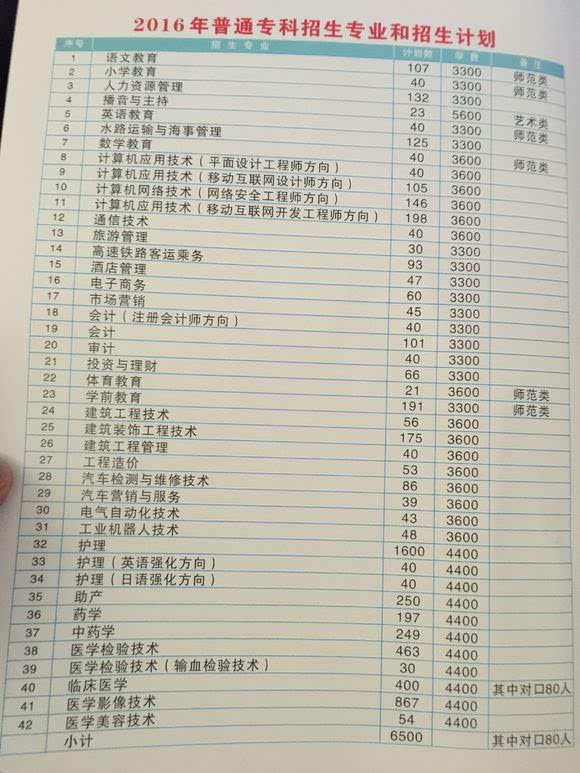 2016年普通专科招生专业和招生计划
序号 招生专业 计划数 学费 备注
1 语文教育 107 3300 师范类
2 小学教育 40 3300 师范类
3 人力资源管理 132 3300
4 播音与主持 23 5600 艺术类
5 英语教育 40 3300 师范类
6 水路运输与海事管理 125 3300
7 数学教育 40 3600 师范类
8 计算机应用技术（平面设计工程师方向） 40 3600
9 计算机应用技术（移动互联网设计师方向） 105 3600
10 计算机网络技术（网络安全工程师方向） 146 3600
11 计算机应用技术（移动互联网开发工程师方向） 198 3600
12 通信技术 40 3600
13 旅游管理 30 3300
14 高速铁路客运乘务 93 3300
15 酒店管理 47 3300
16 电子商务 60 3300
17 市场营销 45 3300
18 会计（注册会计师方向） 40 3300
19 会计 101 3300
20 审计 40 3300
21 投资与理财 66 3300
22 体育教育 21 3600 师范类
23 学前教育 191 3300 师范类
24 建筑工程技术 56 3600
25 建筑装饰工程技术 175 3600
26 建筑工程管理 40 3600
27 工程造价 53 3600
28 汽车检测与维修技术 86 3600
29 汽车营销与服务 39 3600
30 电气自动化技术 43 3600
31 工业机器人技术 48 3600
32 护理 1600 4400
33 护理（英语强化方向） 40 4400
34 护理（日语强化方向） 40 4400
35 助产 250 4400
36 药学 197 4400
37 中药学 249 4400
38 医学检验技术 463 4400
39 医学检验技术（输血检验技术） 30 4400
40 临床医学 400 4400 其中对口80人
41 医学影像技术 867 4400
42 医学美容技术 54 4400
小计 6500 其中对口80人